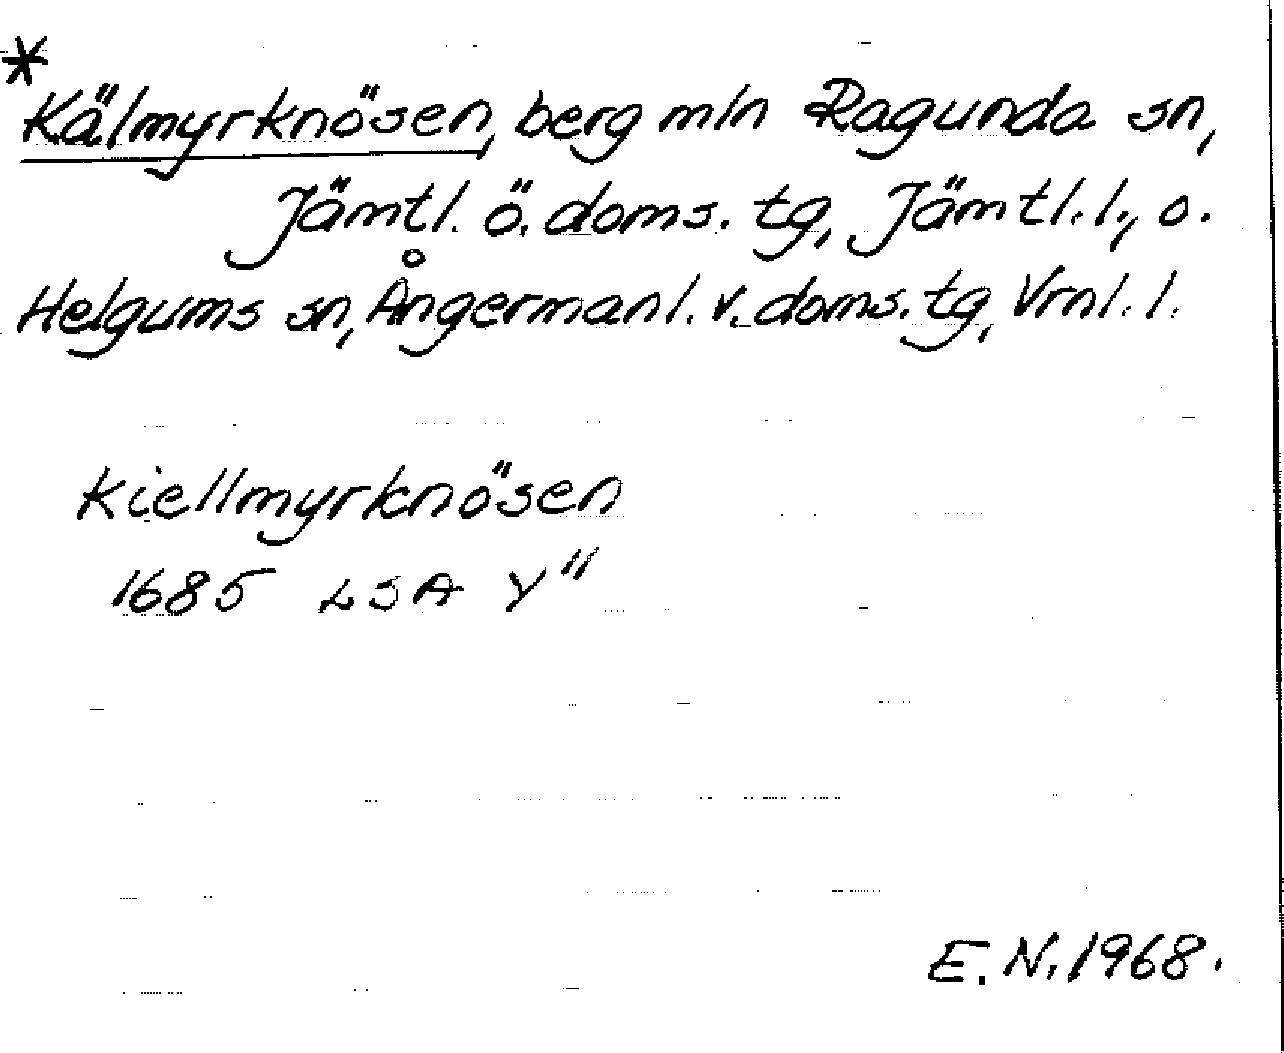 *
Kälmyrknösen, berg mln Ragunda sn,
Jämtl. ö. doms. tg, Jämtl. l., o.
Helgums sn, Ångermanl. v. doms. tg, Vrnl. l.
Kiellmyrknösen
1685 LSA Y"
E. N. 1968.